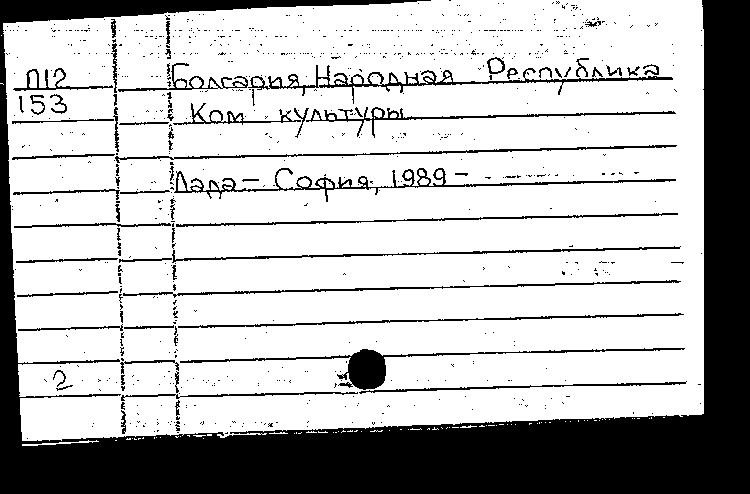 П12
153
Болгария, Народная Республика
Ком культуры
Лада — София, 1989 —
2